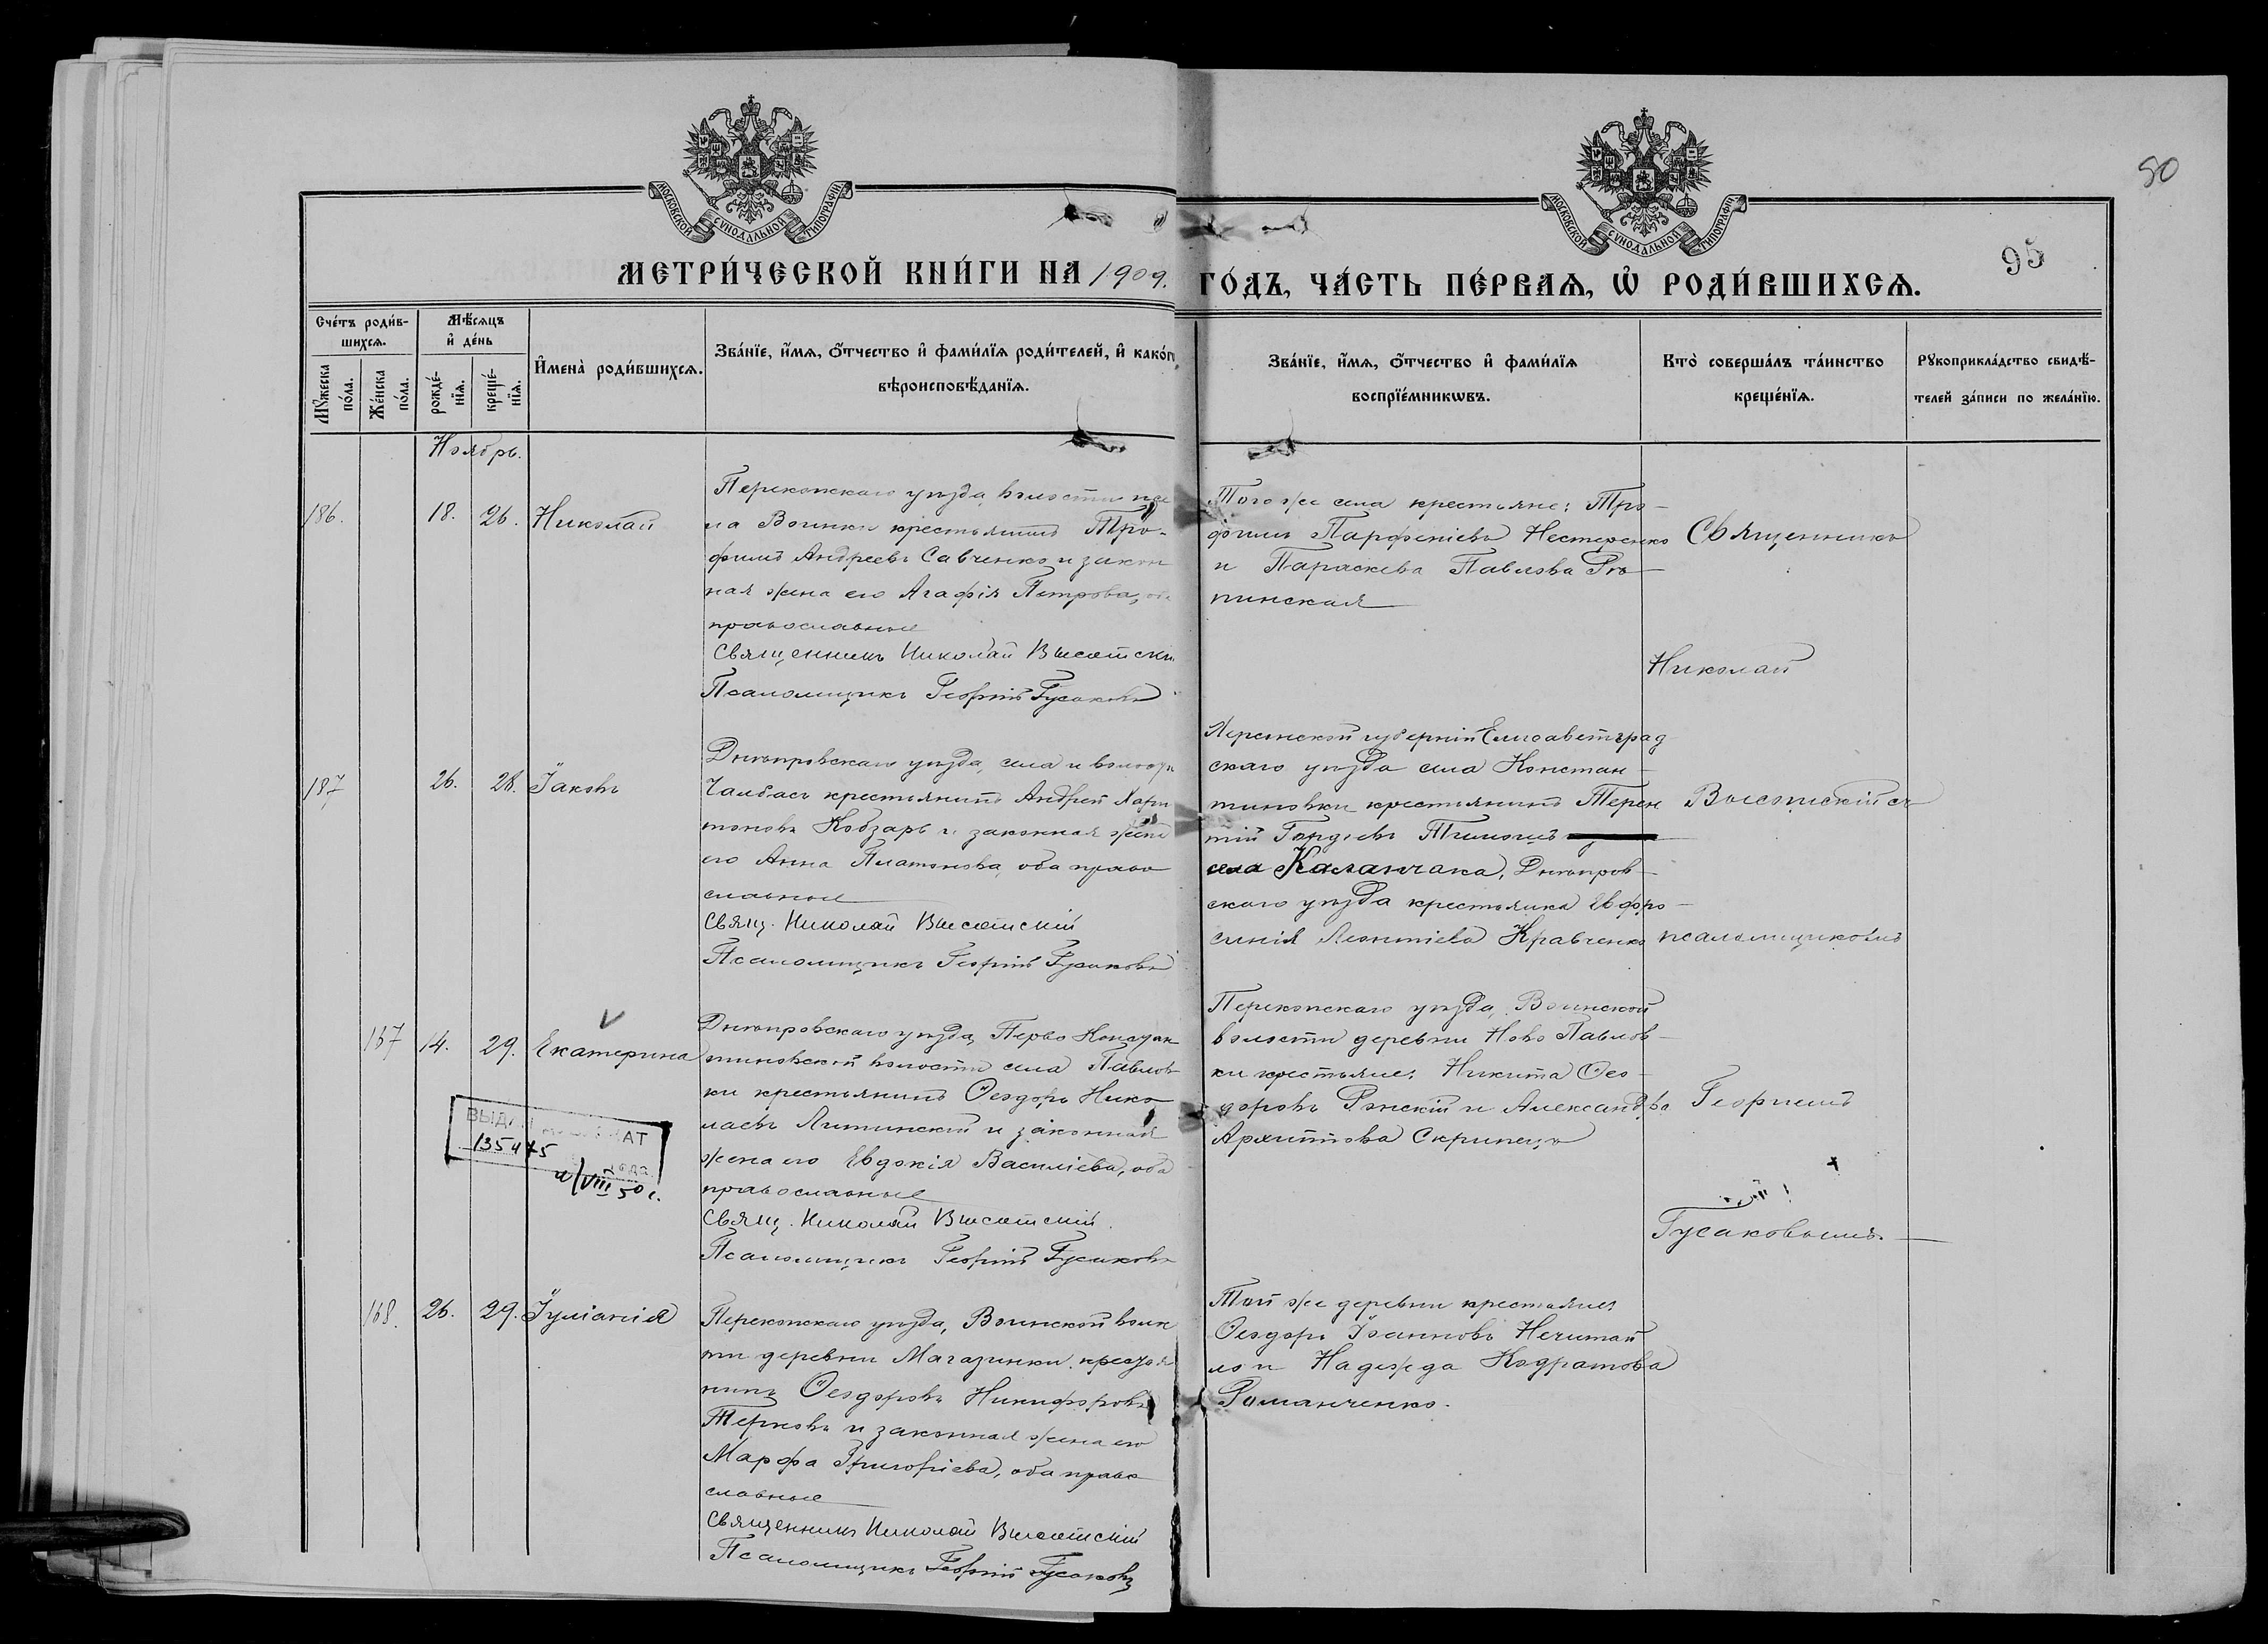 50
95
МОСКОВСКОЙ СѴНОДАЛЬНОЙ ТИПОГРАФІИ
МОСКОВСКОЙ СѴНОДАЛЬНОЙ ТИПОГРАФІИ
МЕТРИ́ЧЕСКОЙ КНИ́ГИ НА 1909. ГО́ДЪ, ЧА́СТЬ ПЕ́РВАѦ, Ѡ҆ РОДИ́ВШИХСѦ.
Сче́тъ роди́в-
шихсѧ.
Мꙋ́жеска
по́ла.
Же́нска
по́ла.
Мѣ́сѧцъ
и҆ де́нь
рожде́-
нїѧ.
креще́-
нїѧ.
И҆мена̀ роди́вшихсѧ.
Зва́нїе, и҆́мѧ, ѻ҆́тчество и҆ фами́лїѧ роди́телей, и҆ како́гѡ
вѣроисповѣ́данїѧ.
Зва́нїе, и҆́мѧ, ѻ҆́тчество и҆ фами́лїѧ
воспрїе́мникѡвъ.
Кто̀ соверша́лъ та́инство
креще́нїѧ.
Рꙋкоприкла́дство свидѣ́-
телей за́писи по жела́нїю.
Ноябрь.
186.
18.
26.
Николай
Перекопскаго уѣзда, волости и се
ла Воинки крестьянинъ Тро-
фимъ Андреевъ Савченко и закон
ная жена его Агафія Петрова, оба
православные
Священникъ Николай Высотскій
Псаломщикъ Георгій Гусаковъ
Того же села крестьяне: Тро-
фимъ Парфеніевъ Нестеренко
и Параскева Павлова Ро-
пинская
Священникъ
Николай
187
26.
28.
Іаковъ
Днѣпровскаго уѣзда, села и волости
Чалбасъ крестьянинъ Андрей Хари
тоновъ Кобзарь и законная жена
его Анна Платонова, оба право
славные
Свящ. Николай Высотскій
Псаломщикъ Георгій Гусаковъ
Херсонской губерніи Елисаветград
скаго уѣзда села Констан-
тиновки крестьянинъ Терен
тій Гордіевъ
села Каланчака, Днѣпров-
скаго уѣзда крестьянка Евфро-
синія Леонтіева Кравченко
Высотскій съ
псаломщикомъ
167
14.
29.
Екатерина
ВЫДАН АТ
135475
года
и/VIII 50 г.
Днѣпровскаго уѣзда, Перво Констан
тиновской волости села Павлов
ки крестьянинъ Ѳеодоръ Нико
лаевъ Литинскій и законная
жена его Евдокія Василіева, оба
православные
Свящ. Николай Высотскій.
Псаломщикъ Георгій Гусаковъ
Перекопскаго уѣзда, Воинской
волости деревни Ново Павлов-
ки крестьяне: Никита Ѳео-
доровъ Рэнскій и Александра
Архиппова Скрипецъ
Георгіемъ
Гусаковымъ.
168.
26.
29.
Іуліанія
Перекопскаго уѣзда, Воинской волос
ти деревни Магазинки крестья
нинъ Ѳеодоровъ Никифоровъ
Терновъ и законная жена его
Марфа Григоріева, оба право
славные
Священникъ Николай Высотскій
Псаломщикъ Георгій Гусаковъ
Той же деревни крестьяне:
Ѳеодоръ Іоанновъ Нечитай
ло и Надежда Кодратова
Романченко.